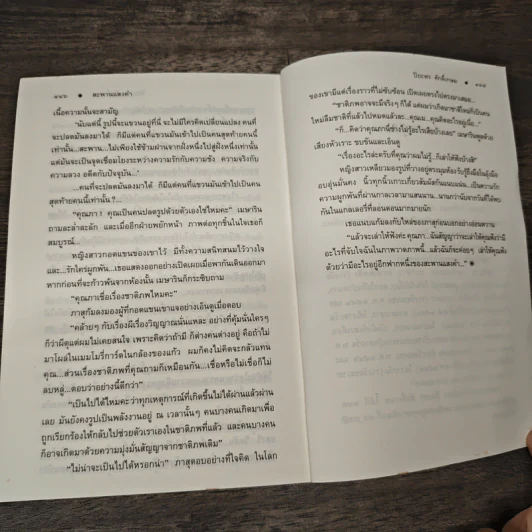 ๑๑๖ ● สะพานแสงคำ
เนื้อความนั้นจะสามัญ
"นับแต่นี้ รูปนี้จะแขวนอยู่ที่นี่ จะไม่มีใครคิดเปลี่ยนแปลง คนที่
จะปลดมันลงมาได้ ก็มีแต่คนที่แขวนมันเข้าไปเป็นคนสุดท้ายคนนี้
เท่านั้น...สะพาน...ไม่เพียงใช้ข้ามผ่านจากฝั่งหนึ่งไปสู่ฝั่งหนึ่งเท่านั้น
แต่มันจะเป็นจุดเชื่อมโยงระหว่างความรักกับความชัง ความจริงกับ
ความลวง อดีตกับปัจจุบัน..."
...คนที่จะปลดมันลงมาได้ ก็มีแต่คนที่แขวนมันเข้าไปเป็นคน
สุดท้ายคนนี้เท่านั้น?...
"คุณภา! คุณเป็นคนปลดรูปด้วยตัวเองใช่ไหมคะ" เมษาริน
ถามละล่ำละลัก และเมื่ออีกฝ่ายพยักหน้า ภาพต่อทุกชิ้นในใจเธอก็
สมบูรณ์...
หญิงสาวกอดแขนของเขาไว้ มีทั้งความสนิทสนมไว้วางใจ
และ...รักใคร่ผูกพัน...เธอแสดงออกอย่างเปิดเผยเมื่อพากันเดินออกมา
หากก่อนที่จะก้าวพ้นจากห้องนั้น เมษารินก็กระซิบถาม
"คุณภาเชื่อเรื่องชาติภพไหมคะ"
ภาสุกัมลงมองผู้ที่กอดแขนเขาแจอย่างเอ็นดูเมื่อตอบ
"คล้ายๆ กับเรื่องผีเรื่องวิญญาณนั่นแหละ อย่างที่คุณมั่นใครๆ
ก็ว่าผีดุแต่ผมไม่เคยสนใจ เพราะคิดว่าถ้ามี ก็ต่างคนต่างอยู่ คือถ้าไม่
มาโผล่ในเมมโมรี่การ์ดในกล้องของแก้ว ผมก็คงไม่คิดจะกลัวแทน
คุณ...ส่วนเรื่องชาติภพที่คุณถามก็เหมือนกัน...เชื่อหรือไม่เชื่อก็ไม่
ลบหลู่...ตอบว่าอย่างนี้ดีกว่า"
"เป็นไปได้ไหมคะว่าทุกเหตุการณ์ที่เกิดขึ้นไม่ได้ผ่านแล้วผ่าน
เลย มันยังคงรูปเป็นพลังงานอยู่ ณ เวลานั้นๆ คนบางคนเกิดมาเพื่อ
ถูกเรียกร้องให้กลับไปช่วยตัวเราเองในชาติภพที่แล้ว และคนบางคน
ก็อาจเกิดมาด้วยความมุ่งมั่นสัญญาจากชาติภพเดิม"
"ไม่น่าจะเป็นไปได้หรอกน่า" ภาสุตอบอย่างที่ใจคิด ในโลก
ปิยะพร ศักดิ์เกษม ●
ของเขามีแต่เรื่องราวที่ไม่ซับซ้อน เปิดเผยตรงไปตรงมาเสมอ...
"ชาติภพอาจจะมีจริงๆ ก็ได้ แต่ผมว่าเกิดมาชาติใหม่ก็เป็นคน
ใหม่ลืมชาติที่แล้วไปหมดแล้วละ...คุณเม...คุณคิดอะไรอยู่เนี่ย..."
"ก็...คิดว่าคุณภานี่ช่างไม่รู้อะไรเสียบ้างเลย" เมษารินพูดด้วย
เสียงหัวเราะ ขบขันและเอ็นดู
"เรื่องอะไรล่ะครับที่คุณว่าผมไม่รู้...ก็เล่าให้ฟังบ้างสิ"
หญิงสาวเหลียวมองรูปที่วางอยู่ตรงมุมห้อง
อบอุ่นมั่นคง นิ้วทุกนิ้วเกาะเกี่ยวสัมผัสกันแนบแน่น...เป็นความรัก
ความผูกพันที่ผ่านกาลเวลามาแสนนาน...นานกว่านับจากวันที่ได้พบ
กันในแกลเลอรี่ที่ลอนดอนมากมายนัก
เธอแนบแก้มลงกับไหล่ของภาสุก่อนบอกอย่างอ่อนหวาน
"แล้วจะเล่าให้ฟังค่ะคุณภา...ฉันสัญญาว่าจะเล่าให้คุณฟังว่ามี
อะไรที่จับใจฉันในภาพวาดภาพนี้...แล้วฉันก็จะค่อยๆ เล่าให้คุณฟัง
ด้วยว่ามีอะไรอยู่อีกฟากหนึ่งของสะพานแสงคำ..."